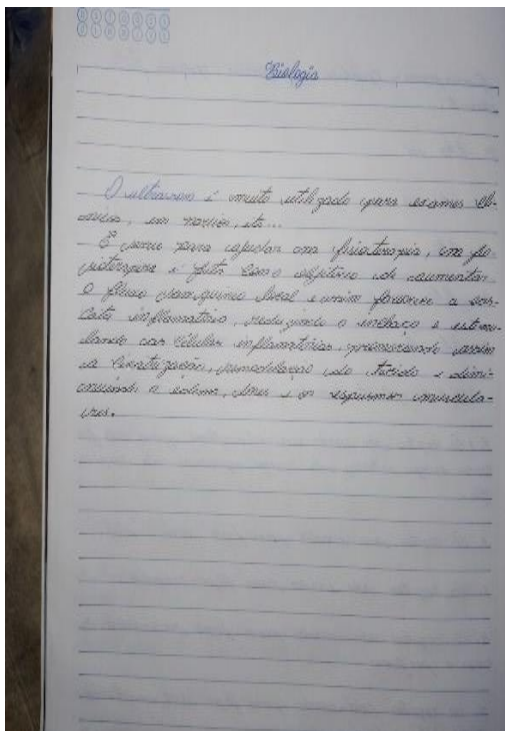 Biologia
O ultrassom é muito utilizado para exames clí-
nicos, em navios, etc...
E serve para ajudar na fisioterapia, na fi-
sioterapia é feito com o objetivo de aumentar
o fluxo sanguíneo local e assim favorece a
cata inflamatória, reduzindo o inchaço e estimu-
lando as células inflamatórias, promovendo assim
a cicatrização, remodelação do tecido e dimi-
nuindo o edema, dores e os espasmos muscula-
res.